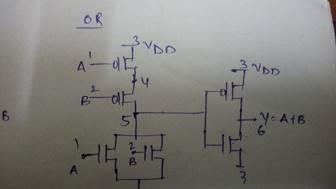 OR
3 VDD
1
A
4
2
B
5
3 VDD
Y=A+B
6
3
1
A
2
B
B